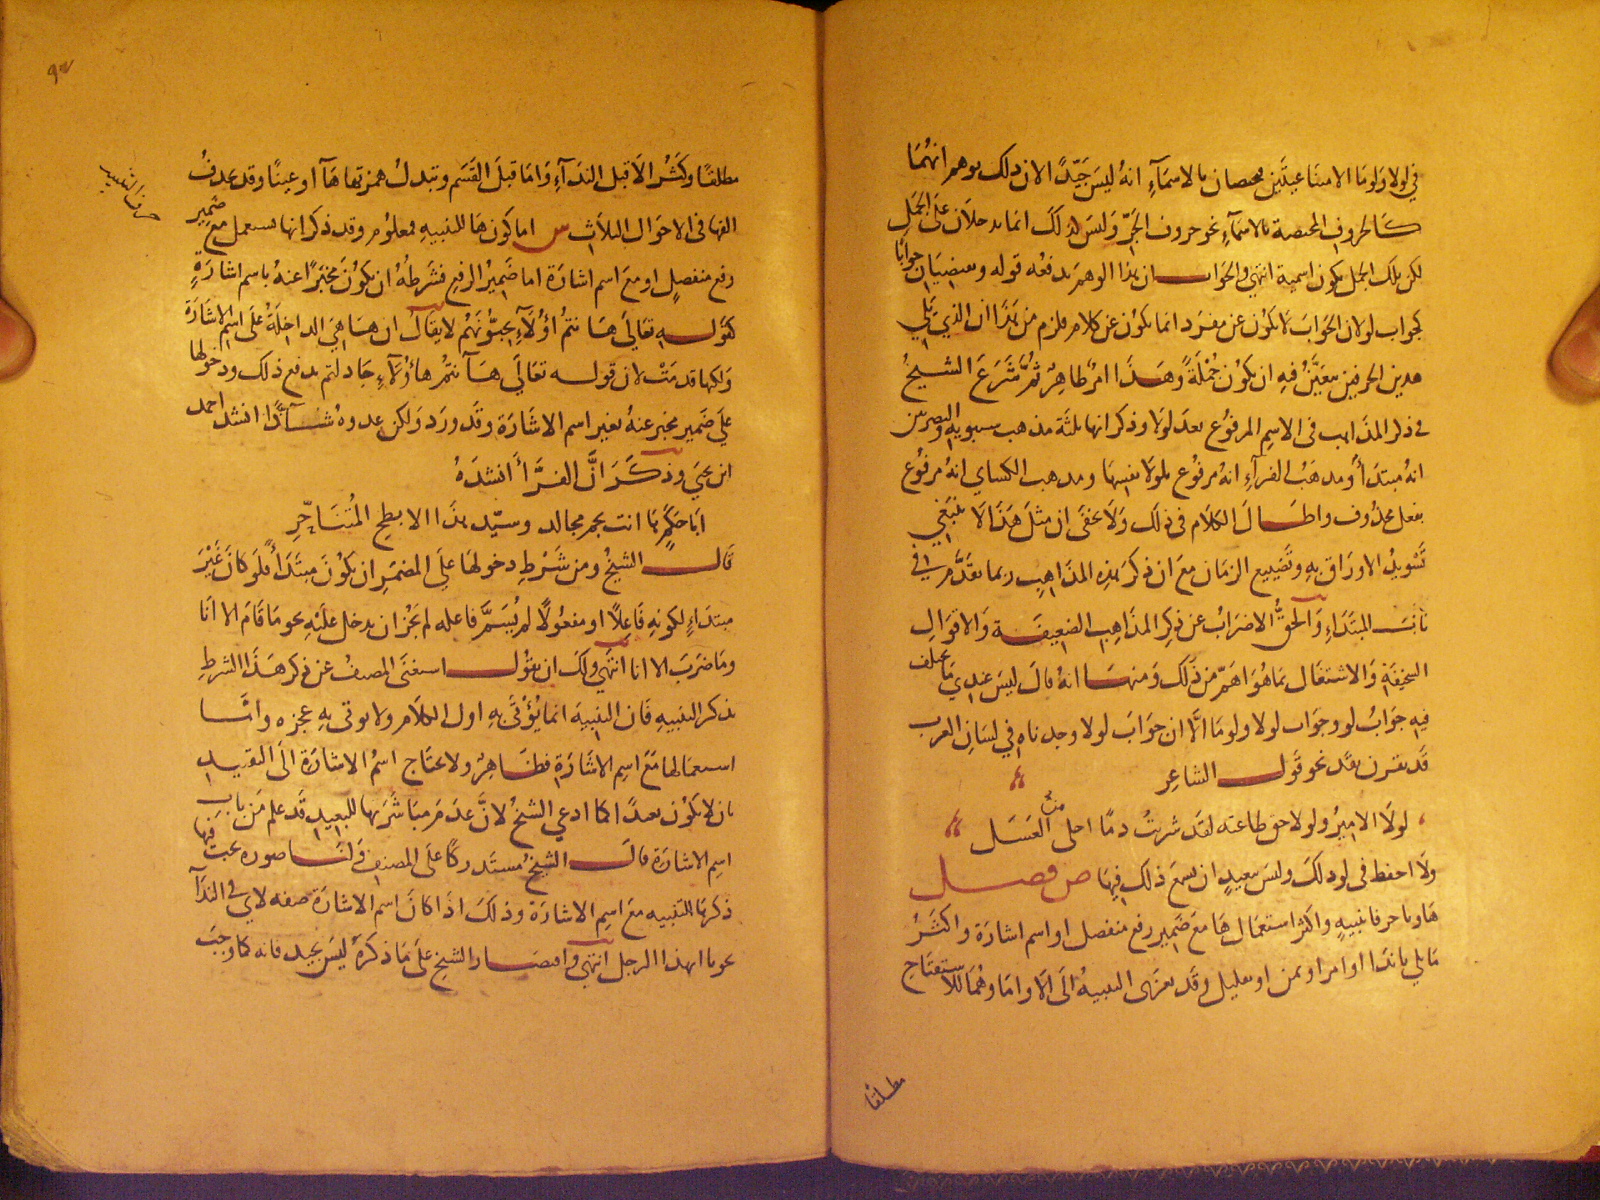 في لولا ولوما الامتناعيتين يختصان بالاسماء انه ليس جيدا الا ان ذلك يوهم انهما
كالحروف المختصة بالاسماء نحو حروف الجر وليس كذلك انما يدخلان على الجمل
لكن تلك الجمل تكون اسمية انتهى والجواب ان هذا الوهم يدفعه قوله ويقتضيان جوابا
كجواب لو لان الجواب لا يكون عن مفرد انما يكون عن كلام فلزم من هذا ان الذي يلي
هذين الحرفين يتعين فيه ان يكون جملة وهذا امر ظاهر ثم شرع الشيخ
في ذكر المذاهب في الاسم المرفوع بعد لولا وذكر انها ثلثة مذهب سيبويه والبصريين
انه مبتدأ ومذهب الفراء انه مرفوع بلولا نفسها ومذهب الكساي انه مرفوع
بفعل محذوف واطال الكلام في ذلك ولا يخفى ان مثل هذا لا ينبغي
تسويد الاوراق به وتضييع الزمان مع ان ذكر هذه المذاهب ربما تقدم في
باب المبتداء والحق الاضراب عن ذكر المذاهب الضعيفة والاقوال
السخيفة والاشتغال بما هو اهم من ذلك ومنها انه قال ليس عندي ما يختلف
فيه جواب لو وجواب لولا ولوما الا ان جواب لولا وجدناه في لسان العرب
قد يقرن بقد نحو قول الشاعر
لولا الامير ولولا حق طاعته لقد شربت دما احلى من العسل
ولا احفظ في لو ذلك وليس ببعيد ان يسمع ذلك فيها ص فصل
ها ويا حرفا تنبيه واكثر استعمال ها مع ضمير رفع منفصل او اسم اشارة واكثر
ما يلي يا ندا او امر او تمن او تعليل وقد يعزى التنبيه الى الا واما وهما للاستفتاح
مطلقا
٩٢
مطلقا وكثر الا قبل النداء واما قبل القسم وتبدل همزتها هاء او عينا وقد تحذف
الفها في الاحوال الثلاث س اما كون ها للتنبيه فمعلوم وقد ذكر انها تستعمل مع ضمير
حرف التنبيه
رفع منفصل او مع اسم اشارة اما ضمير الرفع فشرطه ان يكون مخبرا عنه باسم اشارة
كقوله تعالى ها انتم اولاء تحبونهم لا يقال ان ها هي الداخلة على اسم الاشارة
ولكنها قدمت لان قوله تعالى ها انتم هاؤلاء جادلتم يدفع ذلك ودخولها
على ضمير مخبر عنه بغير اسم الاشارة وقد ورد ولكن عدوه شاذا انشد احمد
ابن يحيى وذكر ان الفرأ انشده
ابا حكم ها انت نجم مجالد وسيد هذا الابطح المتناحر
قال الشيخ ومن شرط دخولها على المضمر ان يكون مبتدأ فلو كان غير
مبتداء لكونه فاعلا او مفعولا لم يسم فاعله لم يجز ان يدخل عليه نحو ما قام الا انا
وما ضرب الا انا انتهى ولك ان تقول استغنى المصنف عن ذكر هذا الشرط
بذكر التنبيه فان التنبيه انما يؤتى به اول الكلام ولا يوتى به عجزه واما
استعمالها مع اسم الاشارة فظاهر ولا يحتاج اسم الاشارة الى التقييد
بان لا يكون بعيدا كما ادعى الشيخ لان عدم مباشرتها للبعيد قد علم من باب
اسم الاشارة قال الشيخ مستدركا على المصنف ولنا صورة يجب فيها
ذكر ها التنبيه مع اسم الاشارة وذلك اذا كان اسم الاشارة صفة لاي في الندا
نحو يا ايهذا الرجل انتهى واقتصار الشيخ على ما ذكره ليس بجيد فانه كما وجب